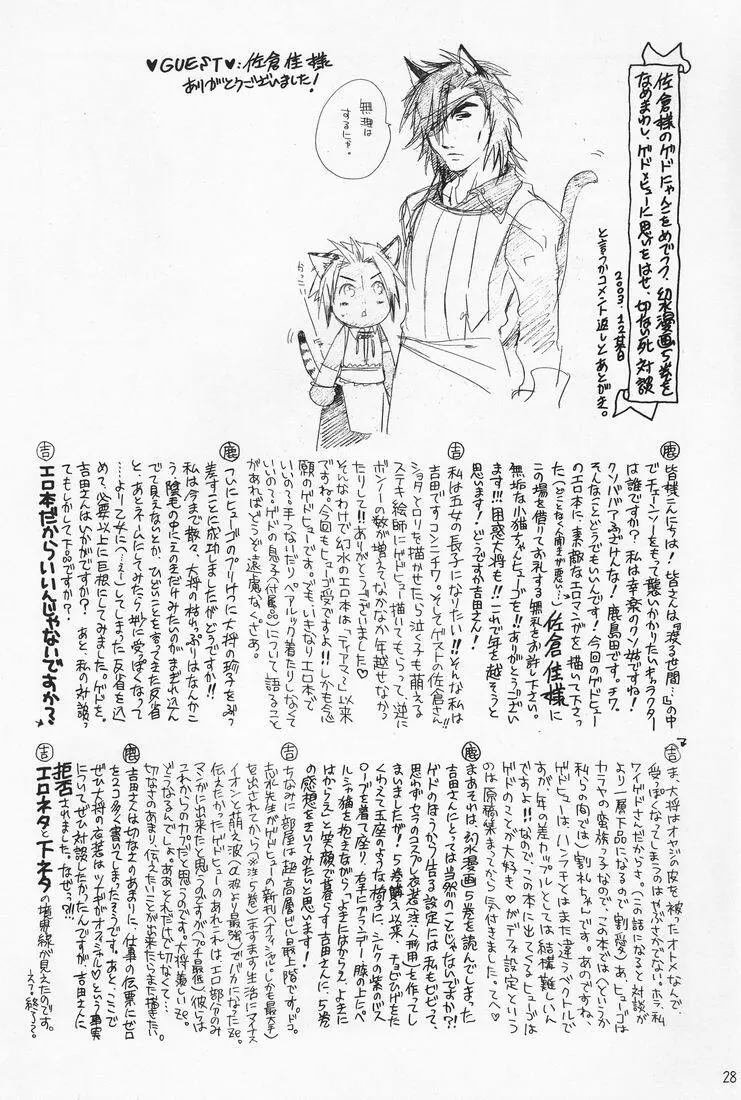 ♥GUEST♥:佐倉佳様
ありがとうございました!
無理は
するにゃ。
かっこいい
佐倉様のゲドにゃんこをめでつつ、幻水漫画5巻を
なめまわし、ゲド×ヒューに思いをはせ、切ない死対談
2003.12某日
と言うかコメント返しとあとがき。
鹿 皆様こんにちは!皆さんは、『渡る世間…』の中
でチェーンソーをもって襲いかかりたいキャラクター
は誰ですか?私は幸楽のクソ姑ですね!
クソババアふざけんな!鹿島田です。チワ。
そんなことどうでもいいんです!今回のゲドヒュー
のエロ本に、素敵なエロマンガを描いて下さっ
た 佐倉佳様に
この場を借りてお礼する無礼をお許し下さい。
無垢な小猫ちゃんヒューゴ!!ありがとうござい
ます!!!困惑大将も!!これで年を越そうと
思います!どうですか吉田さん!
吉 私は五女の長子になりたい!!そんな私は
吉田ですコンニチワ。そしてゲストの佐倉さん!!
ショタとロリを描かせたら泣く子も萌える
ステキ絵師にゲドヒュー描いてもらって、逆に
ボンノーの数が増えてなかなか年越せなかっ
たりして!!ありがとうございました♡
そんなわけで幻水のエロ本は「ティアマ〜」以来
ですね。今回もヒューゴ受ですよ!!しかも念
願のゲドヒューです。でも、いきなりエロ本で
いいの?手つないだり、ペアルック着たりしなくて
いいの?ゲドの息子(付属品)について語ること
があればどうぞ遠慮なくさあ。
鹿 ついにヒューゴのプリけつに大将の珍子をぶっ
差すことに成功しましたがどうですか!!
私は今まで散々、大将の枯れっぷりはなんかこ
う
と、あとネームにしてみたら妙に受っぽくなって
しまった反省を込
めて、必要以上に巨根にしてみました。ゲドを。
吉田さんはいかがですか?あと、私の対談っ
てもしかして下品ですか?
吉 エロ本だからいいんじゃないですか?
吉 ま、大将はオヤジの皮を被ったオトメなんで、
受っぽくなってしまうのはやぶさかでない。ホラ、私
ワイゲドさんだからさ。(この話になると対談が
より一層下品になるので割愛)あ、ヒューゴは
カラヤの蛮族っ子なので、この本では(というか
私らの間では)割礼ちゃんです。あのですね、
ゲドヒューは、ハンクチとはまた違うベクトルで
すが、年の差カップルとしては結構難しいん
ですよ!!なので、この本に出てくるヒューゴは
ゲドのことが大好き♡がデフォ設定という
のは原稿集まってから気付きました。てへ♡
鹿 まあそれは、幻水漫画5巻を読んでしまった
吉田さんにとっては当然のことじゃないですか?!
ゲドのほうから借る設定には私もビビって、
思わずセラのコスプレ衣装(注・人形用)を作ってし
まいましたが!5巻購入以来、チョビひげをた
くわえて玉座のような椅子に、シルクの紫のバス
ローブを着て座り、右手にブランデー膝の上にペ
ルシャ猫を抱えながら「よきにはからえ、よきに
はからえ」と笑顔で暮らす吉田さんに、5巻
の感想をきいてみたいと思います!
吉 ちなみに部屋は超高層ビル最上階です。ドコ。
志水先生がゲドヒューの新刊(オフィシャル。しかも最大手)
を出されてから(※注:5巻)ますます生活にマイナス
イオンと萌え波(α波より最強)でバカになったze。
伝えたかったゲドヒューのあれこれは、エロ部分のみ
マンガに出来たと思うのですが(プチ最低)彼らは
これからの力だと思うのです。大将羨しいze。
どうなるんでしょ。ああ、そんだけで切なくて…
切なさのあまり、伝えたいことが出来たらまた描きたい。
鹿 吉田さんは切なさのあまりに、仕事の伝票にゼロ
を2コ多く書いてしまったようです。あと、ここで
ぜひ大将の衣装はツナギがオフィシャル♡という事実
についてぜひ対談したかったんですが、吉田さんに
拒否されました。なぜっ?!!
吉 エロネタと下ネタの境界線が見えたのです。
28